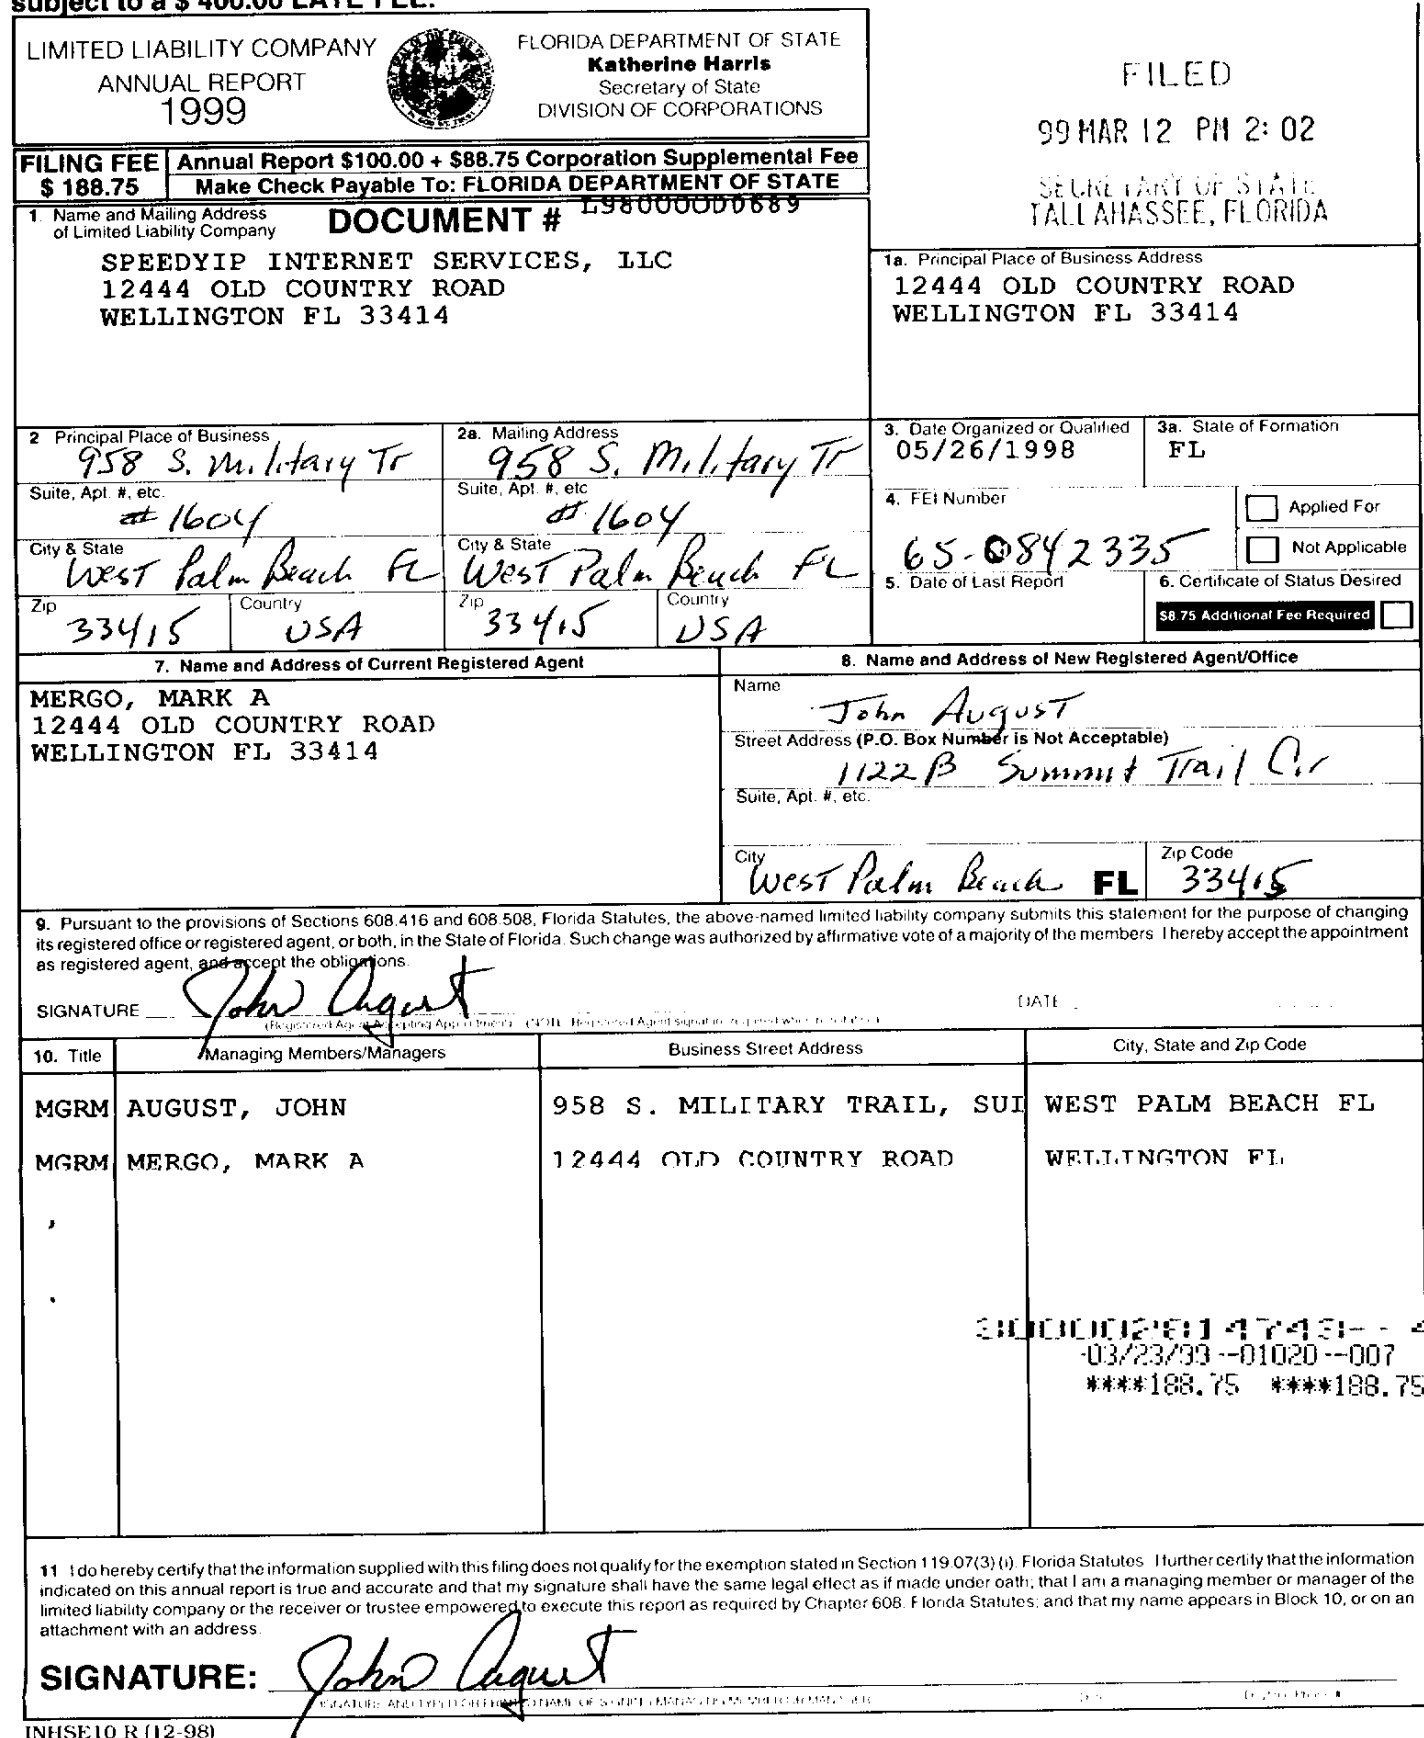 subject to a $ 400.00 LATE FEE.
LIMITED LIABILITY COMPANY
ANNUAL REPORT
1999
FLORIDA DEPARTMENT OF STATE
Katherine Harris
Secretary of State
DIVISION OF CORPORATIONS
FILED
99 MAR 12 PM 2: 02
SECRETARY OF STATE
TALLAHASSEE, FLORIDA
FILING FEE
$ 188.75
Annual Report $100.00 + $88.75 Corporation Supplemental Fee
Make Check Payable To: FLORIDA DEPARTMENT OF STATE
1. Name and Mailing Address
of Limited Liability Company
DOCUMENT # L98000000689
SPEEDYIP INTERNET SERVICES, LLC
12444 OLD COUNTRY ROAD
WELLINGTON FL 33414
1a. Principal Place of Business Address
12444 OLD COUNTRY ROAD
WELLINGTON FL 33414
2 Principal Place of Business
958 S. Military Tr
2a. Mailing Address
958 S. Military Tr
3. Date Organized or Qualified
05/26/1998
3a. State of Formation
FL
Suite, Apt. #, etc.
# 1604
Suite, Apt. #, etc
# 1604
4. FEI Number
65-0842335
Applied For
Not Applicable
City & State
West Palm Beach FL
City & State
West Palm Beach FL
5. Date of Last Report
6. Certificate of Status Desired
$8.75 Additional Fee Required
Zip
33415
Country
USA
Zip
33415
Country
USA
7. Name and Address of Current Registered Agent
MERGO, MARK A
12444 OLD COUNTRY ROAD
WELLINGTON FL 33414
8. Name and Address of New Registered Agent/Office
Name
John August
Street Address (P.O. Box Number is Not Acceptable)
1122 B Summit Trail Cir
Suite, Apt. #, etc.
City
West Palm Beach FL
Zip Code
33415
9. Pursuant to the provisions of Sections 608.416 and 608.508, Florida Statutes, the above-named limited liability company submits this statement for the purpose of changing
its registered office or registered agent, or both, in the State of Florida. Such change was authorized by affirmative vote of a majority of the members I hereby accept the appointment
as registered agent, and accept the obligations.
SIGNATURE John August
DATE
(Registered Agent Accepting Appointment)
10. Title
Managing Members/Managers
Business Street Address
City, State and Zip Code
MGRM AUGUST, JOHN 958 S. MILITARY TRAIL, SUI WEST PALM BEACH FL
MGRM MERGO, MARK A 12444 OLD COUNTRY ROAD WELLINGTON FL
300002814743-- 4
-03/23/99--01020--007
****188.75 ****188.75
11 I do hereby certify that the information supplied with this filing does not qualify for the exemption stated in Section 119.07(3)(i). Florida Statutes I further certify that the information
indicated on this annual report is true and accurate and that my signature shall have the same legal effect as if made under oath; that I am a managing member or manager of the
limited liability company or the receiver or trustee empowered to execute this report as required by Chapter 608. Florida Statutes; and that my name appears in Block 10, or on an
attachment with an address.
SIGNATURE: John August
INHSE10 R (12-98)